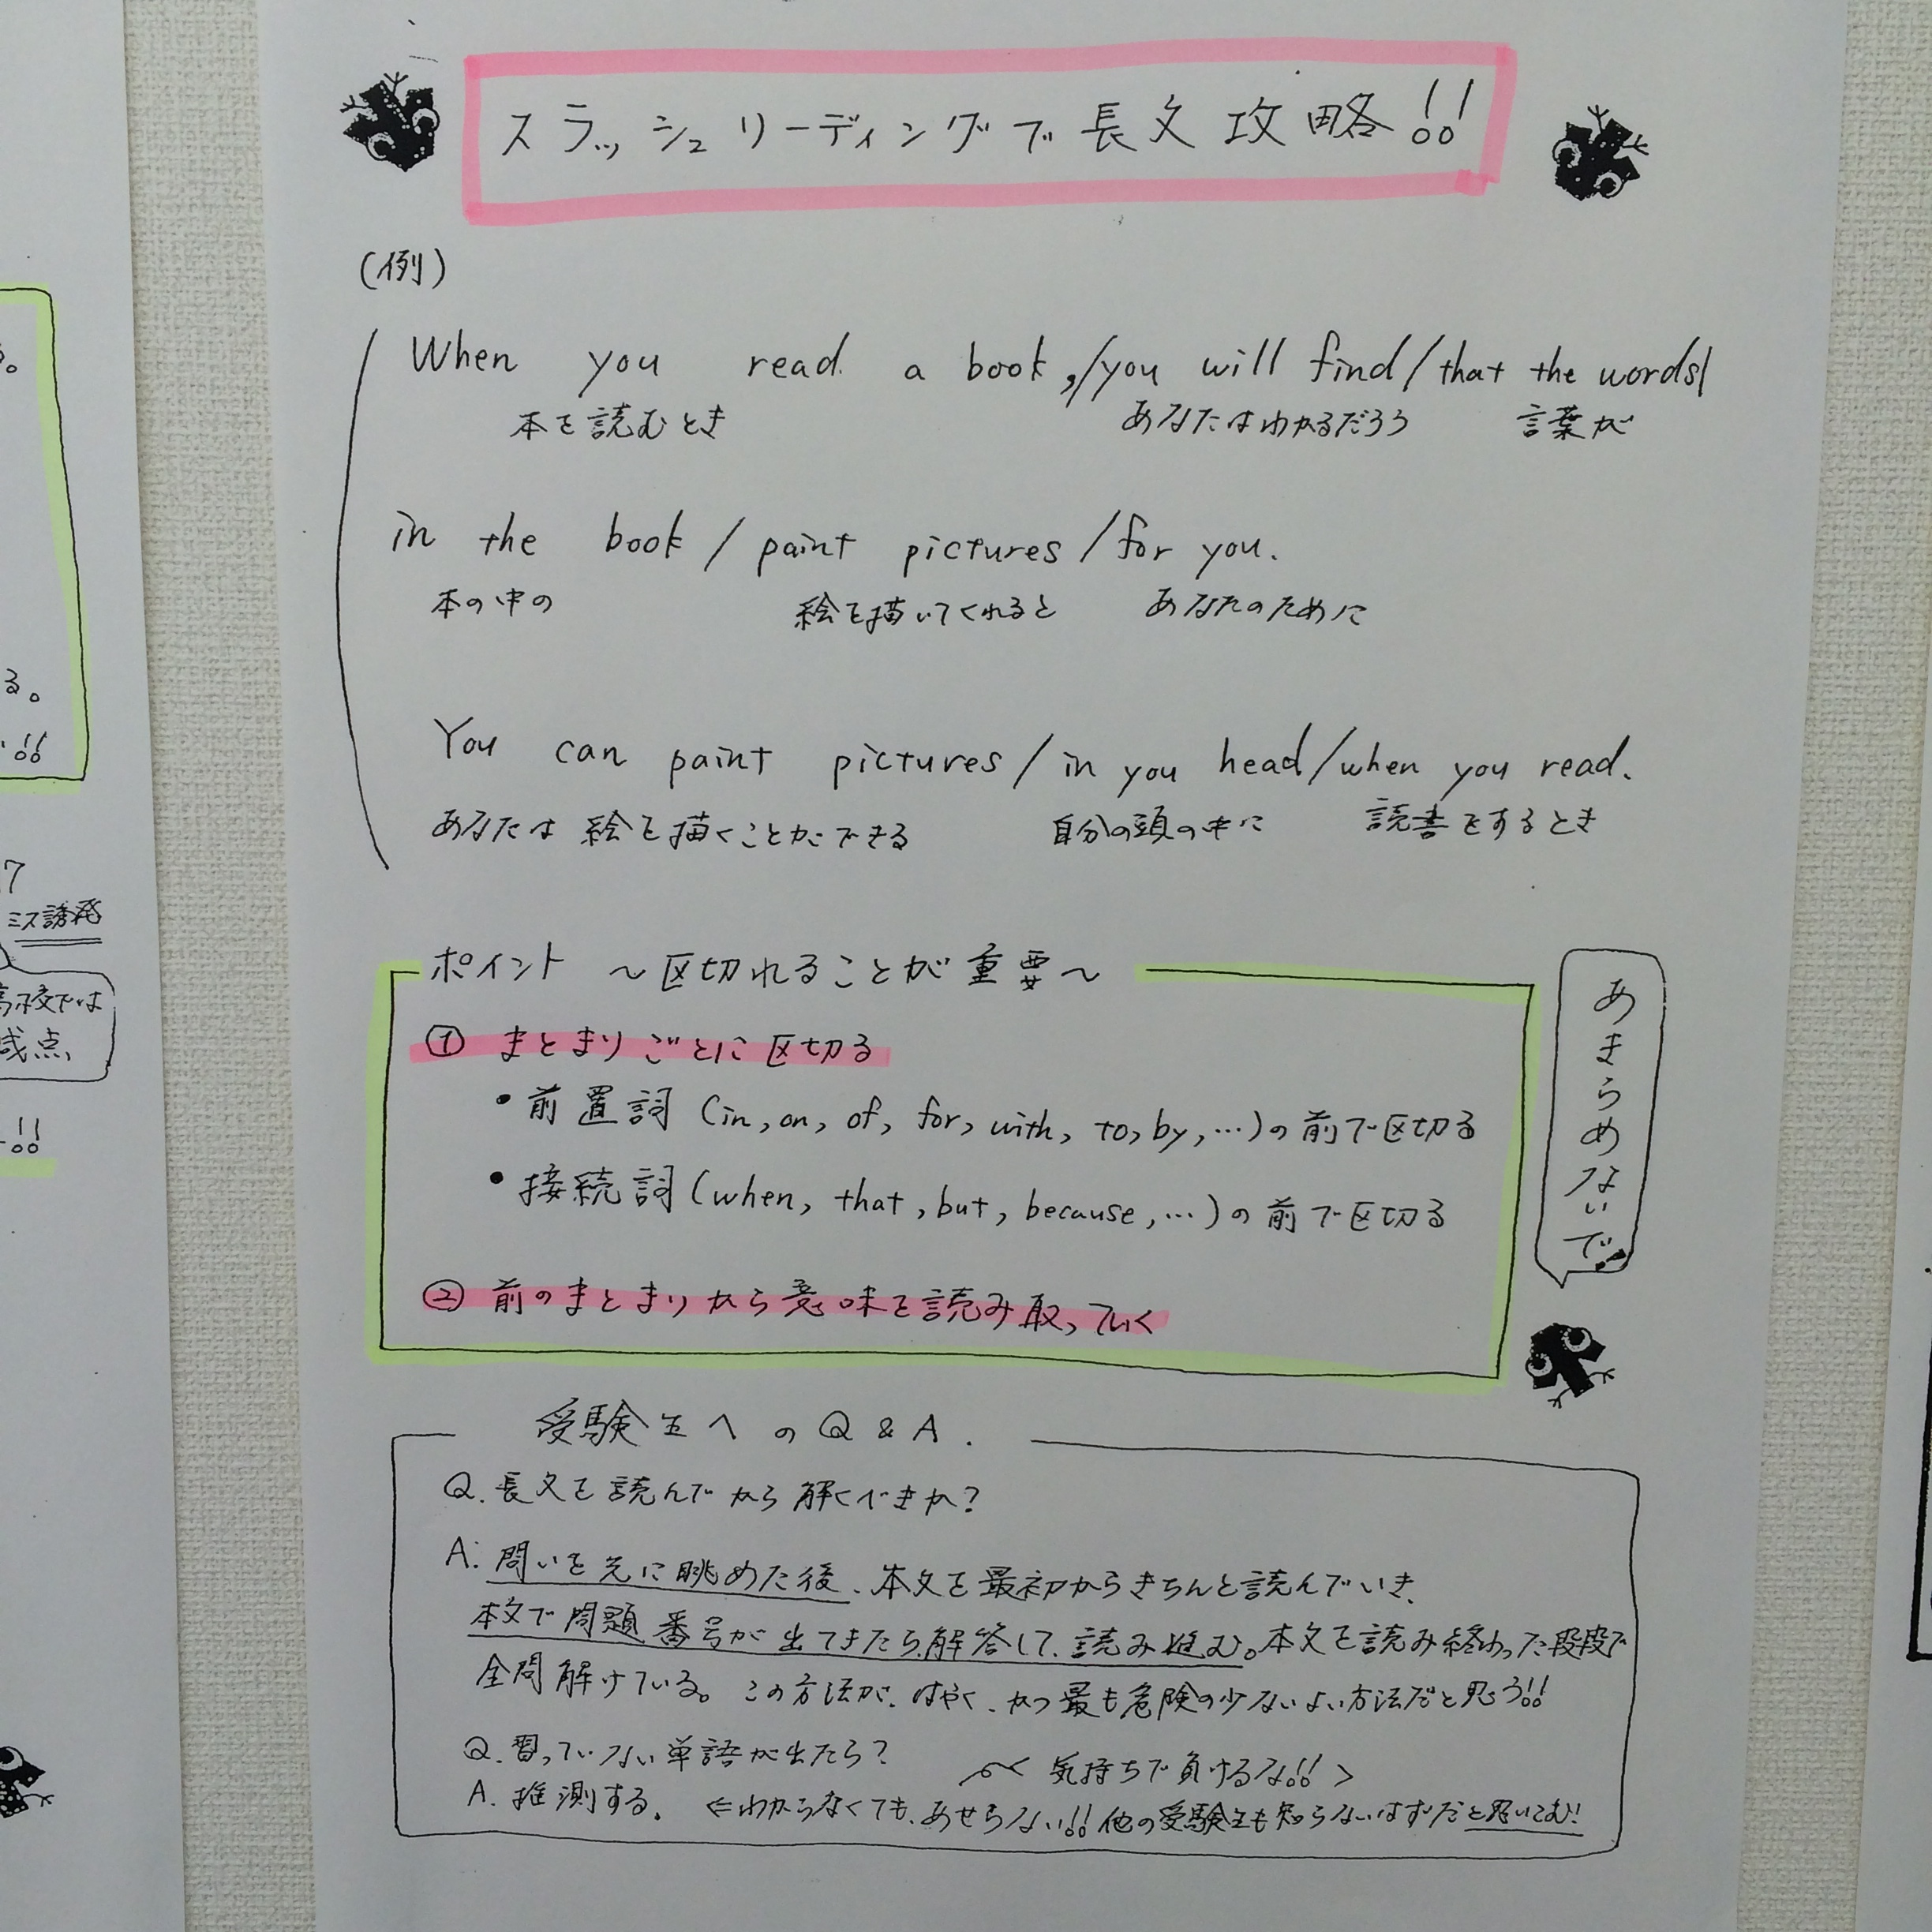 スラッシュリーディングで長文攻略!!
(例)
When you read a book,/you will find/that the words/
本を読むとき あなたはわかるだろう 言葉が
in the book / paint pictures / for you.
本の中の 絵を描いてくれると あなたのために
You can paint pictures / in you head / when you read.
あなたは絵を描くことができる 自分の頭の中に 読書をするとき
ポイント ～区切れることが重要～
① まとまりごとに区切る
・前置詞 (in, on, of, for, with, to, by, …)の前で区切る
・接続詞 (when, that, but, because, …)の前で区切る
② 前のまとまりから意味を読み取っていく
あきらめないで!
受験生へのQ&A.
Q. 長文を読んでから解くべきか?
A: 問いを先に眺めた後、本文を最初からきちんと読んでいき、
本文で問題番号が出てきたら、解答して、読み進む。本文を読み終わった段階で
全問解けている。この方法が、はやく、かつ最も危険の少ないよい方法だと思う!!
Q. 習っていない単語が出たら?
<気持ちで負けるな!!>
A. 推測する。 ⇐わからなくても、あせらない!! 他の受験生も知らないはずだと思いこむ!
る。
!!
7
ミス誘発
高校では
減点
!!